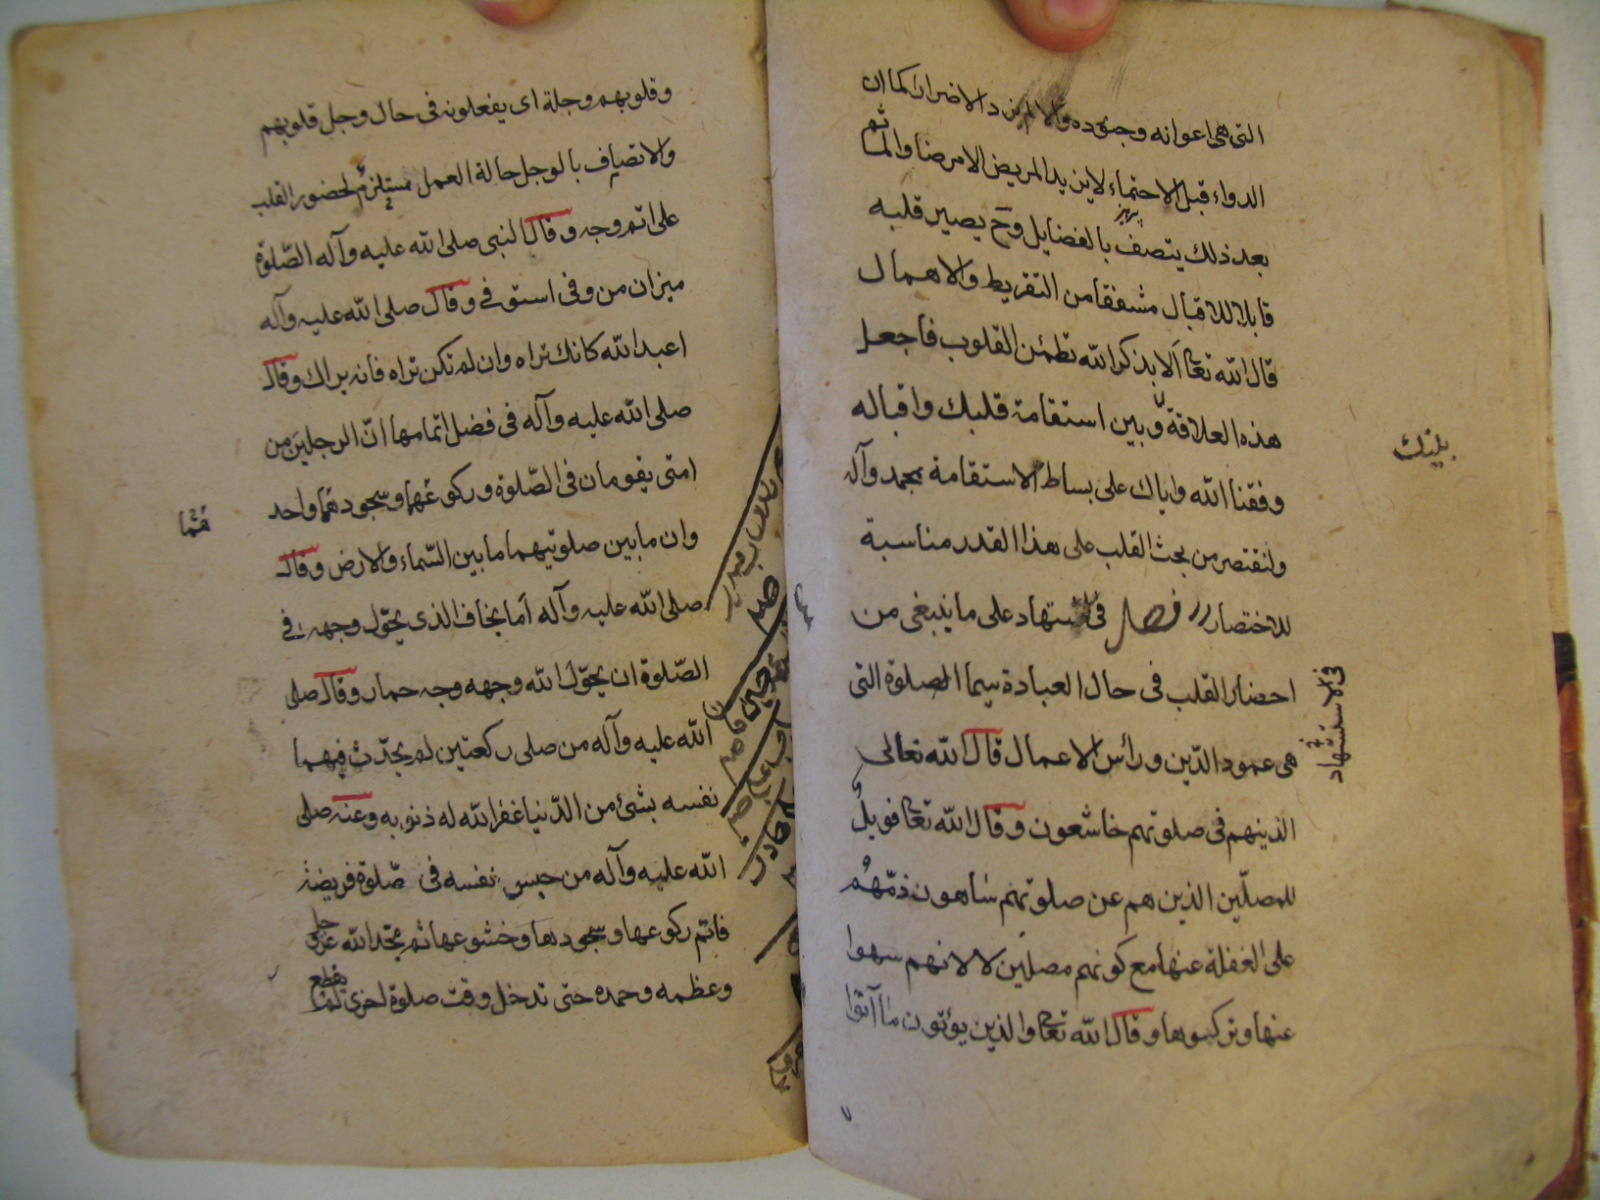 التى هى اعوانه وجنوده والا لم يزد الا ضرارا كما ان
الدواء قبل الاحتماء لا يزيد المريض الا مرضا والما ثم
بعد ذلك يتصف بالفضايل وح يصير قلبه
قابلا للاقبال مشفقا من التفريط والاهمال
قال الله تعا الا بذكر الله تطمئن القلوب فاجعل
هذه العلاقة بين استقامة قلبك واقباله
وفقنا الله واياك على بساط الاستقامة بمحمد وآله
ولنقتصر من بحث القلب على هذا القدر مناسبة
للاختصار فصل فى على ما ينبغى من
احضار القلب فى حال العبادة سيما الصلوة التى
هى عمود الدّين ورأس الاعمال قال الله تعالى
الذينهم فى صلوتهم خاشعون وقال الله تعا فويلٌ
للمصلّين الذين هم عن صلوتهم ساهون ذمّهُم
على الغفلة عنها مع كونهم مصلّين لا لانهم سهوا
عنها وتركبوها وقال الله تعا والذين يؤتون ما آتوا
فى الاستشهاد
٧
وقلوبهم وجلة اى يفعلونه فى حال وجل قلوبهم
والاتصاف بالوجل حالة العمل مستلزم لحضور القلب
على اتم وجه وقال النبى صلى الله عليه وآله الصّلوة
ميزان من وفى استوفى وقال صلى الله عليه وآله
اعبد الله كانك تراه وان لم تكن تراه فانه يراك وقال
صلى الله عليه وآله فى فضل اتمامها انّ الرجلين من
امتى يقومان فى الصّلوة وركوعهما وسجودهما واحد
وان ما بين صلوتيهما ما بين السّماء والارض وقال
صلى الله عليه وآله أما يخاف الذى يحوّل وجهه فى
الصّلوة ان يحوّل الله وجهه وجه حمار وقال صلى
الله عليه وآله من صلى ركعتين لم يحدّث فيهما
نفسه بشئ من الدّنيا غفر الله له ذنوبه وعنه صلى
الله عليه وآله من حبس نفسه فى صلوة فريضة
فاتم ركوعها وسجودها وخشوعها ثم مجّد الله عز وجل
وعظمه وحمده حتى تدخل وقت صلوة اخرى لم